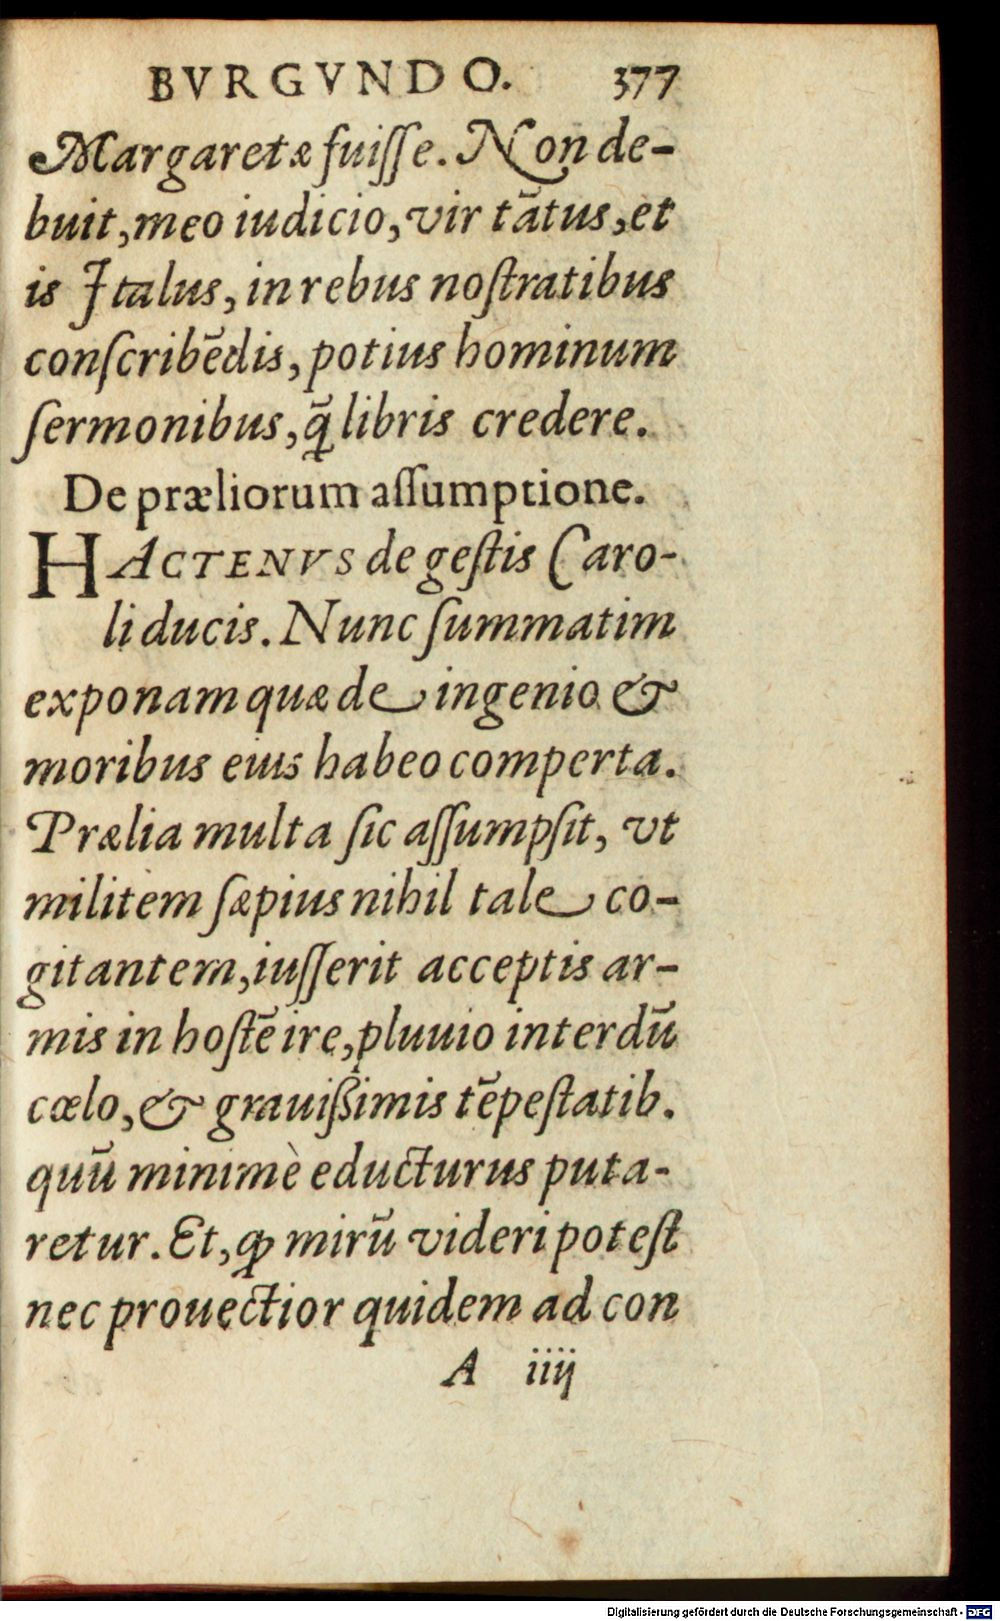 BVRGVNDO. 377
Margaretæ fuiſſe. Non de-
buit, meo iudicio, vir tātus, et
is Italus, in rebus noſtratibus
conſcribēdis, potius hominum
ſermonibus, q̄ libris credere.
De præliorum aſſumptione.
HACTENVS de geſtis Caro-
li ducis. Nunc ſummatim
exponam quæ de ingenio &
moribus eius habeo comperta.
Prælia multa ſic aſſumpſit, vt
militem ſæpius nihil tale co-
gitantem, iuſſerit acceptis ar-
mis in hoſtē ire, pluuio interdū
cœlo, & grauiſsimis tēpeſtatib.
quū minimè educturus puta-
retur. Et, ꝙ mirū videri poteſt
nec prouectior quidem ad con
A iiij
Digitalisierung gefördert durch die Deutsche Forschungsgemeinschaft - DFG